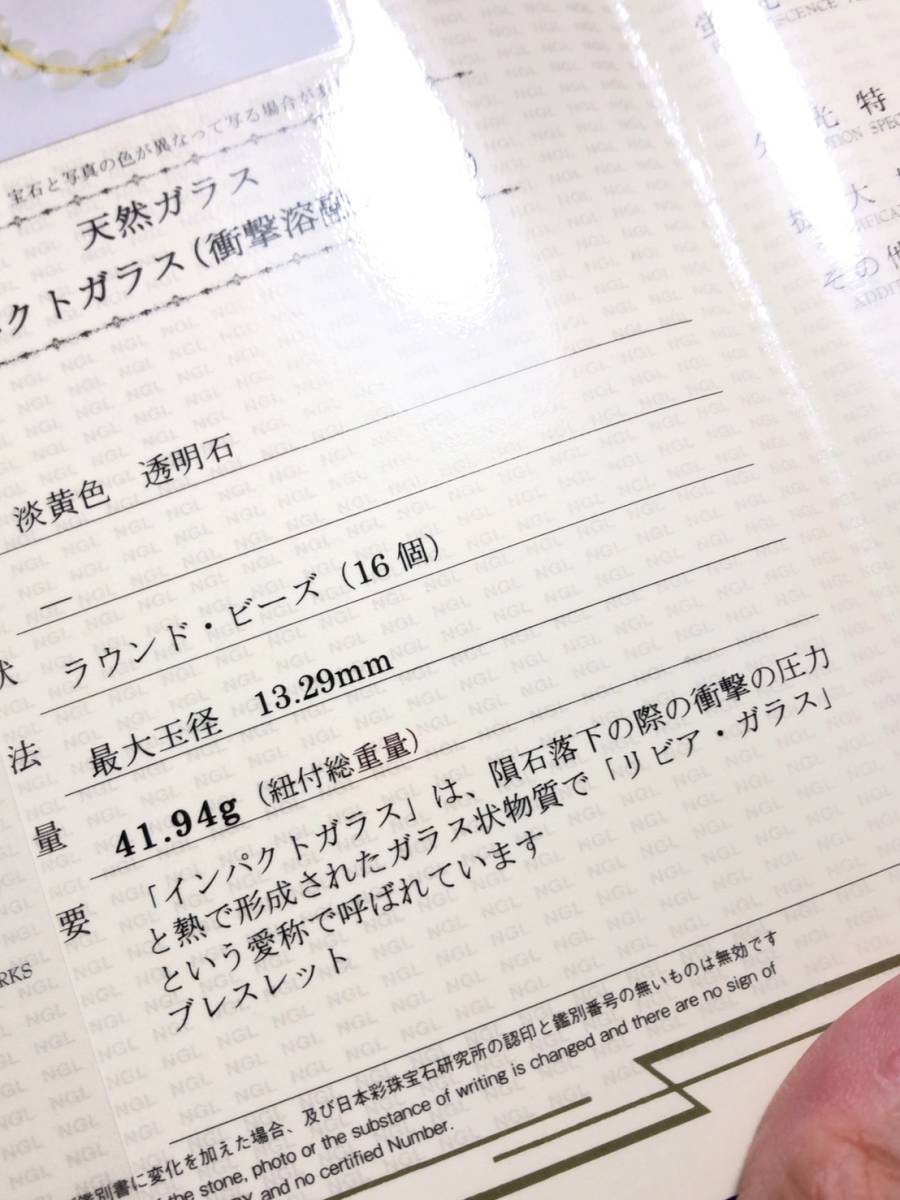 宝石と写真の色が異なって写る場合が
天然ガラス
クトガラス(衝撃溶融
淡黄色 透明石
ラウンド・ビーズ(16個)
法 最大玉径 13.29mm
量 41.94g(紐付総重量)
要 「インパクトガラス」は、隕石落下の際の衝撃の圧力
と熱で形成されたガラス状物質で「リビア・ガラス」
という愛称で呼ばれています
ブレスレット
RKS
鑑別書に変化を加えた場合、及び日本彩珠宝石研究所の認印と鑑別番号の無いものは無効です
the stone, photo or the substance of writing is changed and there are no sign of
and no certified Number.
光特
SCENCE
TION SPEC
拡大
NIFICA
その他
ADDIT
NGL